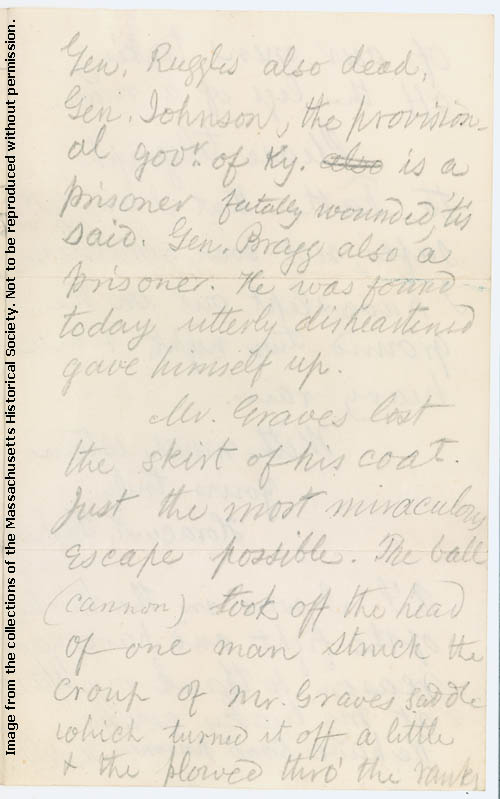 Gen. Ruggles also dead.
Gen. Johnson, the provision-
al govr. of Ky. also is a
prisoner fatally wounded, 'tis
said. Gen. Bragg also a
prisoner. He was found
today utterly disheartened
gave himself up.
Mr. Graves lost
the skirt of his coat.
Just the most miraculous
escape possible. The ball
(cannon) took off the head
of one man struck the
croup of Mr. Graves saddle
which turned it off a little
& the plowed thro' the ranks
Image from the collections of the Massachusetts Historical Society. Not to be reproduced without permission.